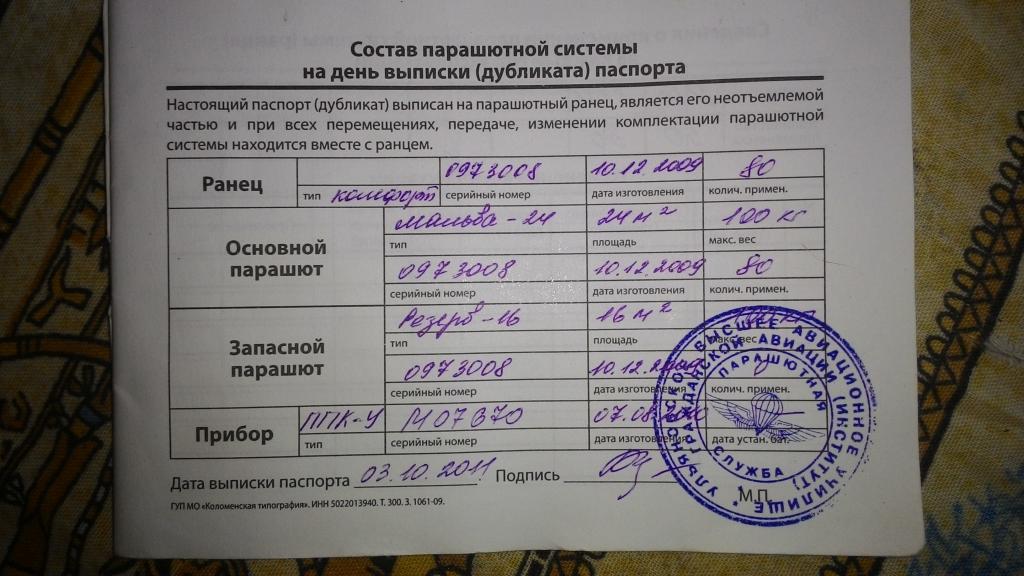 Состав парашютной системы
на день выписки (дубликата) паспорта
Настоящий паспорт (дубликат) выписан на парашютный ранец, является его неотъемлемой
частью и при всех перемещениях, передаче, изменении комплектации парашютной
системы находится вместе с ранцем.
Ранец
0973008 10.12.2009 80
тип комфорт серийный номер дата изготовления колич. примен.
Основной парашют
мальва-24 24 м² 100 кг
тип площадь макс. вес
0973008 10.12.2009 80
серийный номер дата изготовления колич. примен.
Запасной парашют
Резерв-16 16 м²
тип площадь макс. вес
0973008 10.12.2009 0
серийный номер дата изготовления колич. примен.
Прибор
ППК-У М07870
тип серийный номер дата изготовления дата устан. бат.
Дата выписки паспорта 03.10.2011 Подпись
М.П.
ГУП МО «Коломенская типография». ИНН 5022013940. Т. 300. З. 1061-09.
УЛЬЯНОВСКОЕ ВЫСШЕЕ АВИАЦИОННОЕ УЧИЛИЩЕ
ГРАЖДАНСКОЙ АВИАЦИИ (ИНСТИТУТ)
ПАРАШЮТНАЯ
СЛУЖБА